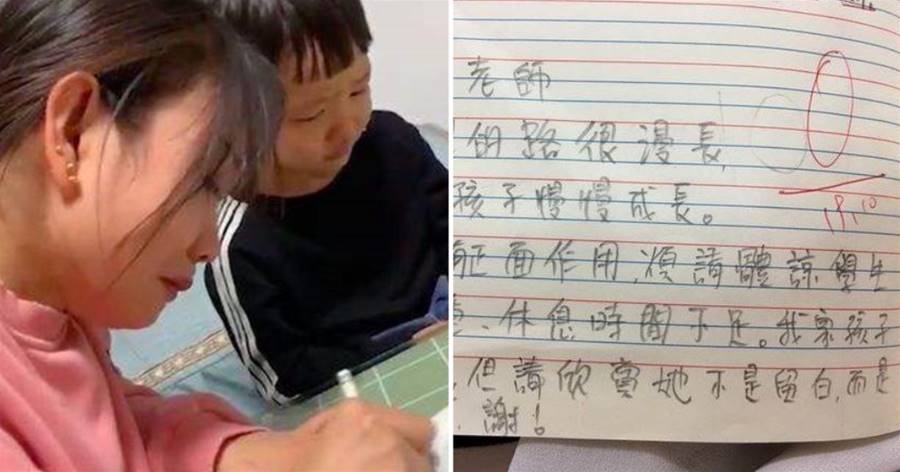 老師
的路很漫長
孩子慢慢成長。
正面作用,煩請體諒學生
、休息時間不足。我家孩子
但請欣賞她不是留白,而是
謝!
0